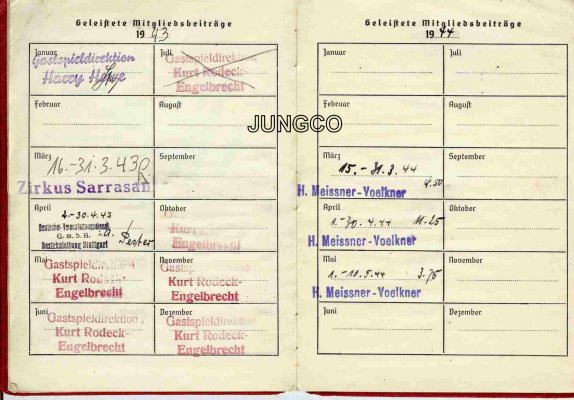 Geleistete Mitgliedsbeiträge
1943
Januar
Gastspieldirektion
Harry
Juli
Gastspieldirektion
Kurt Rodeck-
Engelbrecht
Februar
August
März
16.-31.3.43
Zirkus Sarrasani
September
April
2-30.4.43
G.m.b.H.
Bezirksleitung Stuttgart
Oktober
Kurt
Engelbrecht
Mai
Gastspieldirektion
Kurt Rodeck-
Engelbrecht
November
Gastspieldirektion
Kurt Rodeck-
Engelbrecht
Juni
Gastspieldirektion
Kurt Rodeck-
Engelbrecht
Dezember
Gastspieldirektion
Kurt Rodeck-
Engelbrecht
JUNGCO
Geleistete Mitgliedsbeiträge
1944
Januar
Juli
Februar
August
März
15.-31.3.44
4.50
H. Meissner-Voelkner
September
April
1.-30.4.44 11.25
H. Meissner-Voelkner
Oktober
Mai
1.-10.5.44 3.75
H. Meissner-Voelkner
November
Juni
Dezember